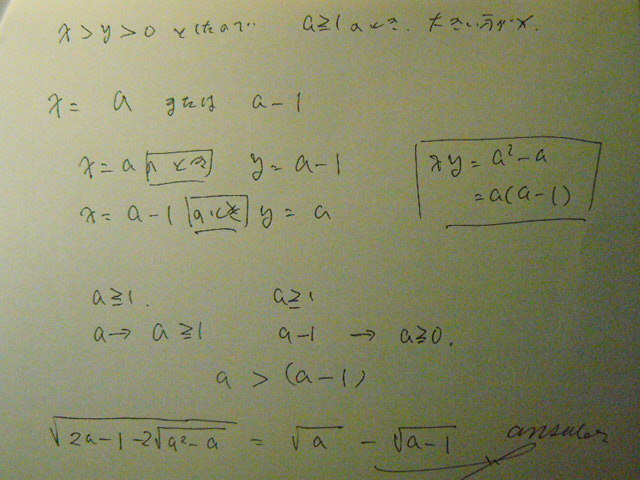 x > y > 0 としたので a≧1 のとき、大きい方が x.
x = a または a - 1
x = a のとき y = a - 1
x = a - 1 のとき y = a
xy = a² - a
= a(a - 1)
a≧1. a≧1
a → a≧1 a-1 → a≧0.
a > (a - 1)
√(2a - 1 - 2√(a² - a)) = √a - √(a - 1) ansular